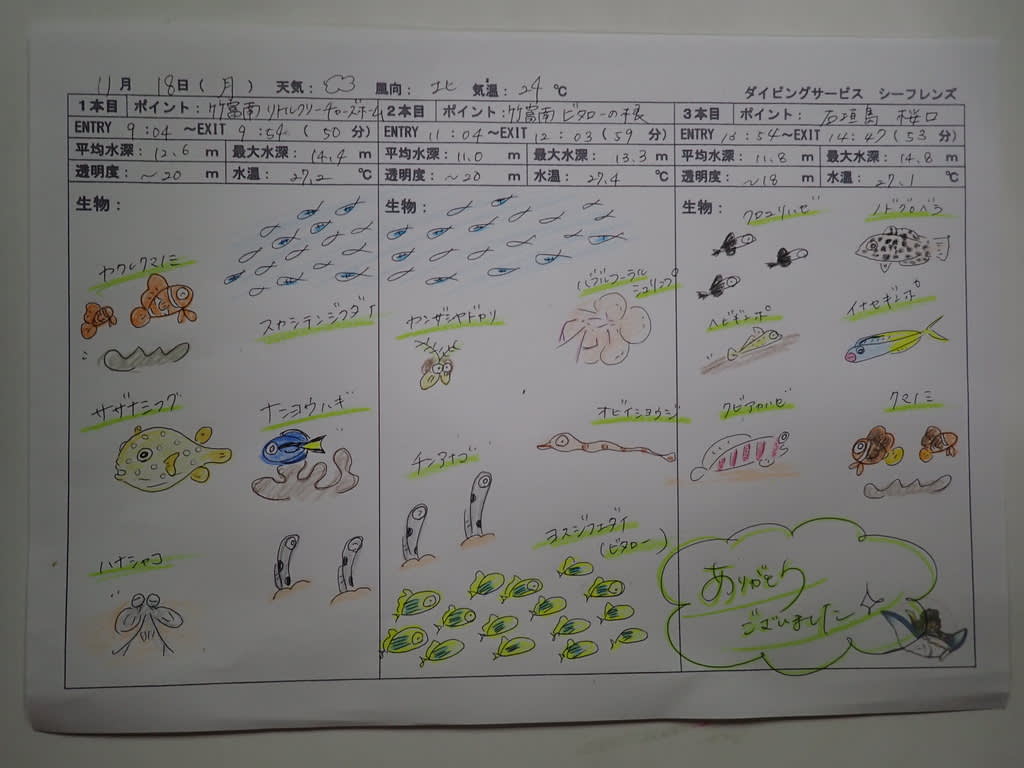 11月 18日(月) 天気: 風向: 北 気温: 24 ℃
ダイビングサービス シーフレンズ
1本目 ポイント: 竹富南 リトルクリーナーズホーム
ENTRY 9:04 ~EXIT 9:54 (50 分)
平均水深: 12.6 m 最大水深: 14.4 m
透明度: ~20 m 水温: 27.2 ℃
生物:
ヤクシマクマノミ
スカシテンジクダイ
サザナミフグ
ナンヨウハギ
ハナシャコ
2本目 ポイント: 竹富南 ビタローの根
ENTRY 11:04 ~EXIT 12:03 (59 分)
平均水深: 11.0 m 最大水深: 13.3 m
透明度: ~20 m 水温: 27.4 ℃
生物:
バブルコーラル
シュリンプ
カンザシヤドカリ
オビイショウジ
チンアナゴ
ヨスジフエダイ
(ビタロー)
3本目 ポイント: 石垣島 桜口
ENTRY 13:54 ~EXIT 14:47 (53 分)
平均水深: 11.8 m 最大水深: 14.8 m
透明度: ~18 m 水温: 27.1 ℃
生物:
クロユリハゼ
ノドグロベラ
ヘビギンポ
イナセギンポ
クビアカハゼ
クマノミ
ありがとう
ございました